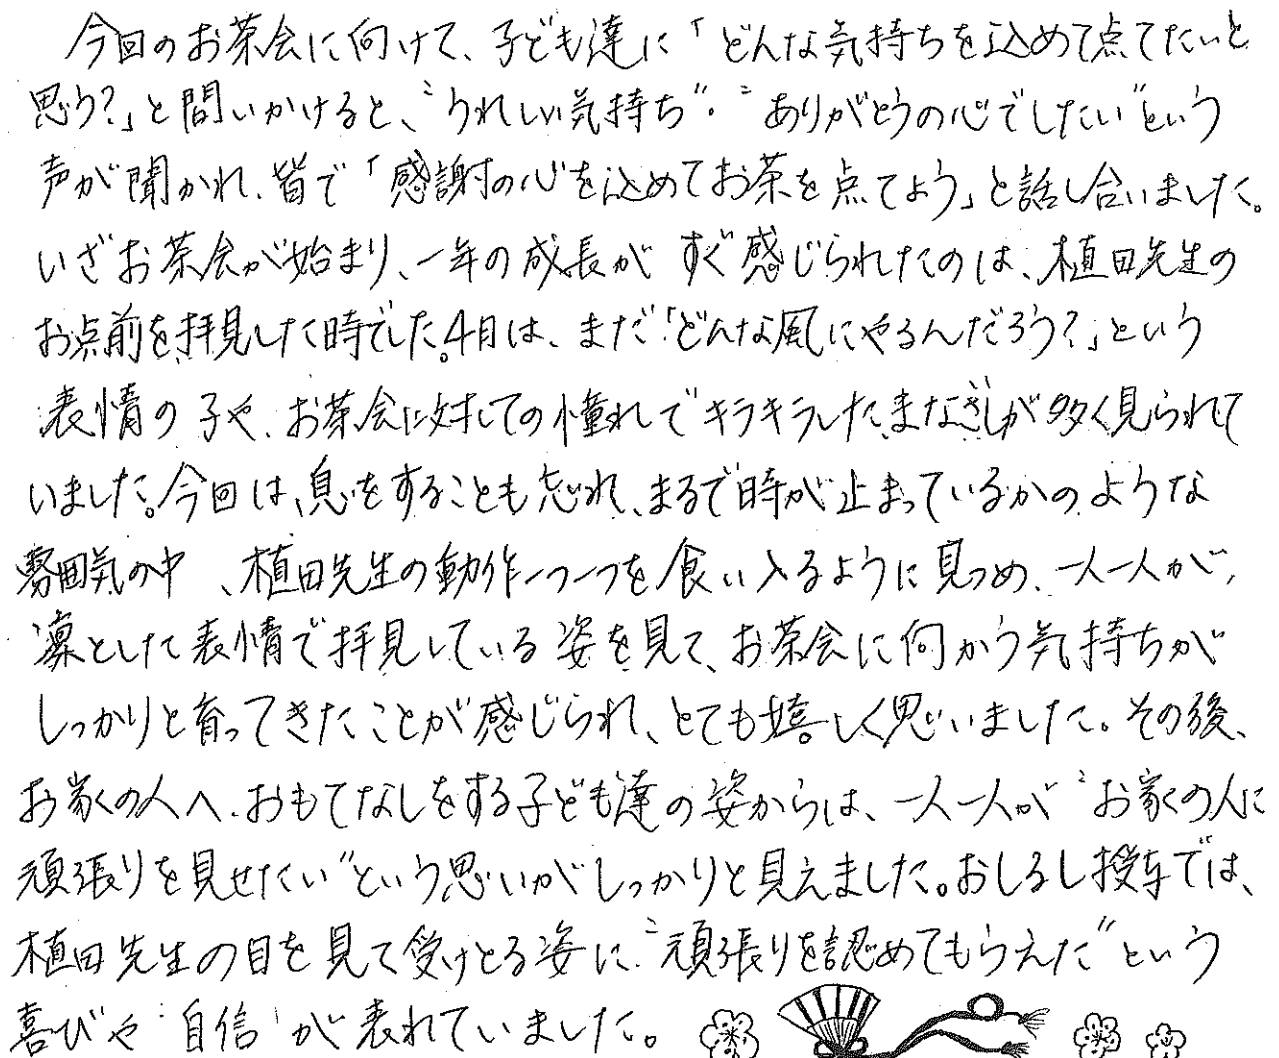 今回のお茶会に向けて、子ども達に「どんな気持ちを込めて点てたいと
思う?」と問いかけると、〝うれしい気持ち〟・〝ありがとうの心でしたい〟という
声が聞かれ、皆で「感謝の心を込めてお茶を点てよう」と話し合いました。
いざお茶会が始まり、一年の成長がすぐ感じられたのは、植田先生の
お点前を拝見した時でした。4月は、まだ「どんな風にやるんだろう?」という
表情の子や、お茶会に対しての憧れでキラキラしたまなざしが多く見られて
いました。今回は、息をすることも忘れ、まるで時が止まっているかのような
雰囲気の中、植田先生の動作一つ一つを食い入るように見つめ、一人一人が、
凛とした表情で拝見している姿を見て、お茶会に向かう気持ちが
しっかりと育ってきたことが感じられ、とても嬉しく思いました。その後、
お家の人へ、おもてなしをする子ども達の姿からは、一人一人が〝お家の人に
頑張りを見せたい〟という思いがしっかりと見えました。おしるし授与では、
植田先生の目を見て受けとる姿に、〝頑張りを認めてもらえた〟という
喜びや〝自信〟が表れていました。